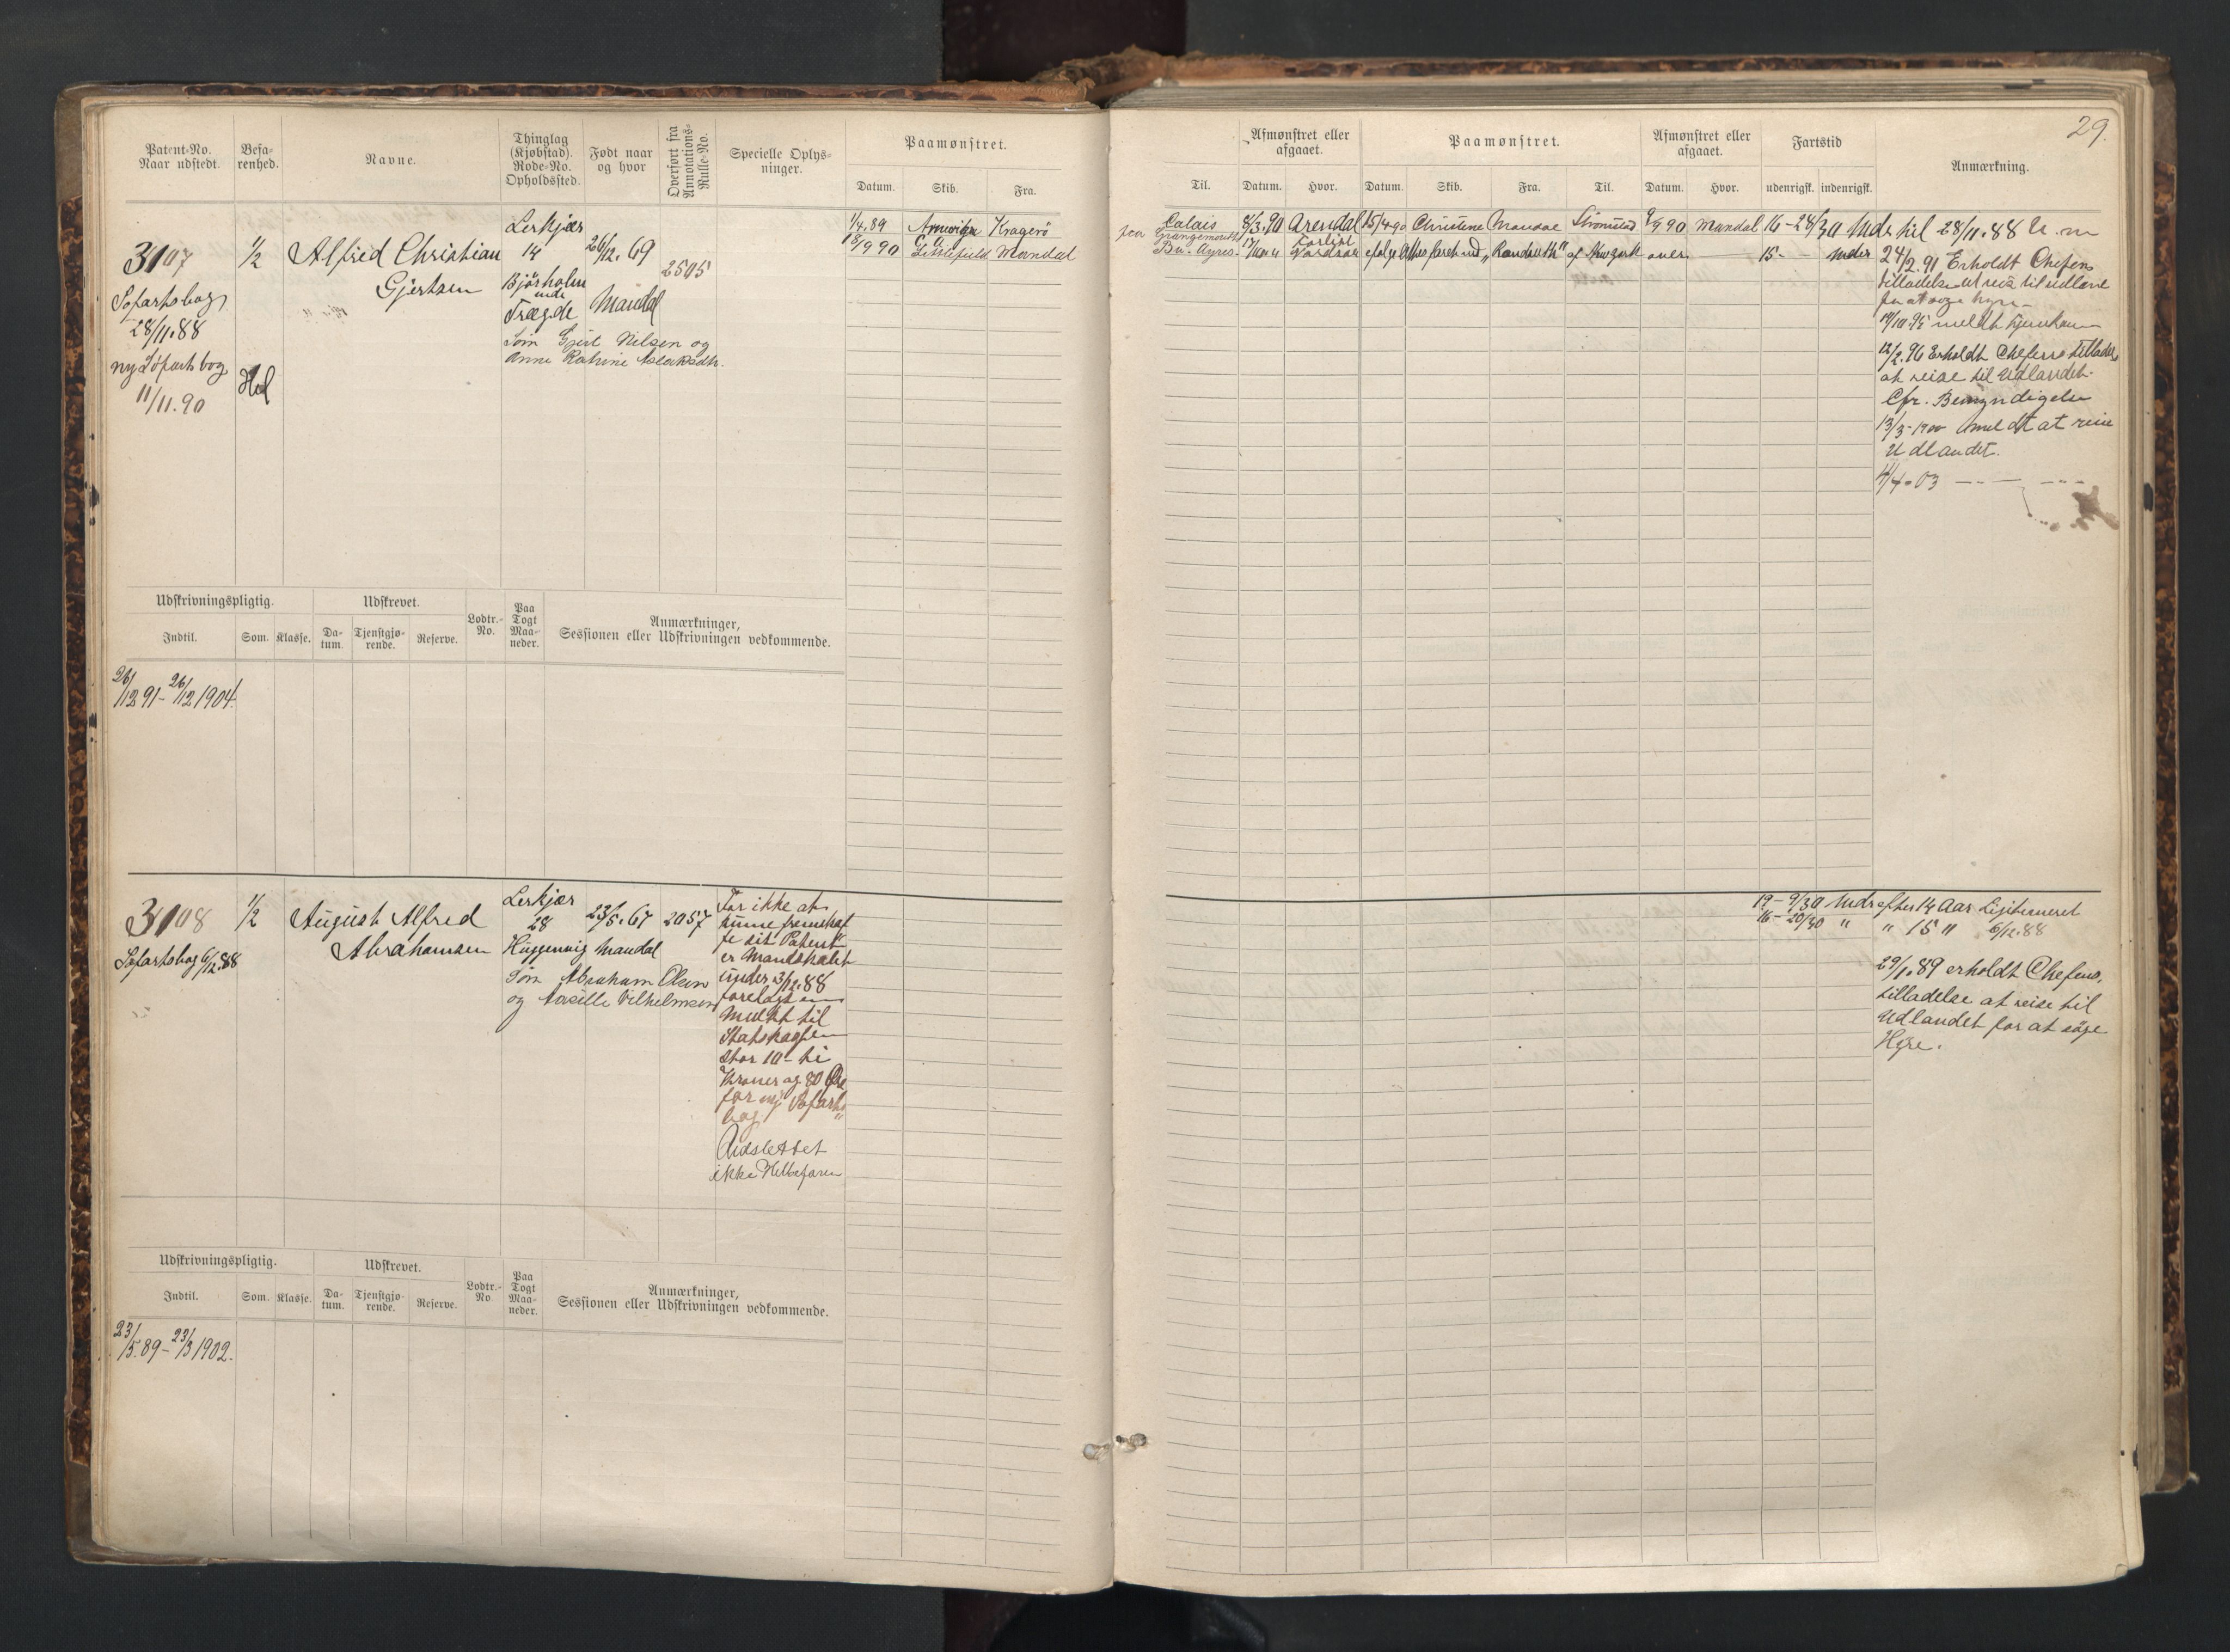 29.
Patent-No.
Naar udstedt.
Besa-
renhed.
Navne.
Thinglag
(Kjøbstad).
Rode-No.
Opholdssted.
Født naar
og hvor
Overført fra
Annotations-
Rulle-No.
Specielle Oplys-
ninger.
Paamønstret.
Datum. Skib. Fra.
Til.
Afmønstret eller
afgaaet.
Datum. Hvor.
Paamønstret.
Datum. Skib. Fra. Til.
Afmønstret eller
afgaaet.
Datum. Hvor.
Fartstid
udenrigsk. indenrigsk.
Anmærkning.
3107
Søfartsbog
28/11.88
ny Søfartsbog
11/11.90
1/2
Hel
Alfred Christian
Gjertsen
Lerkjær
14
Bjørholm
Trægde
26/12.69
Mandal
2505
Søn Gjert Nilsen og
Anne Katrine Aslaksdtr.
1/4.89 Kragerö
18/9 90 Littlefield Mandal
Calais 8/3.90 Arendal 15/4 90 Christine Mandal Strömstad 9/9 90 Mandal 16-28/30 Mdr til 28/11.88
Grangemouth
Bu. Ayres.
15 - Mdr
24/2.91 Erholdt Chefens
tilladelse at reise til udland
for at søge hyre
19/10.95 meldt hjemkom
12/2.96 Erholdt Chefens tillade
at reise til Udlandet.
Cfr. Bemyndigelse
13/3-1900 Anmeldt at reise
Udlandet.
4/4-03 — " — — " —
Udskrivningspligtig.
Indtil. Som. Klasse.
Udskrevet.
Da-
tum. Tjenstgjø-
rende. Reserve.
Lodtr.-
No.
Paa
Togt
Maa-
neder.
Anmærkninger,
Sessionen eller Udskrivningen vedkommende.
26/12 91 - 26/12 1904.
3108
Søfartsbog 6/12.88
1/2
August Alfred
Abrahamsen
Lerkjær
28
23/5.67
Mandal
2057
Søn Abraham Olsen
og Vilhelmsen
For ikke at
kunne fremskaf
fe sit Patent
er Mandskabet
under 3/12.88
forelagt en
Mulkt til
Statskassen
stor 10 - ti
Kroner og 80 Øre
for ny Søfarts
bog
Udslettet
ikke Helbefaren
19 - 9/30 Mdr efter 14 Aar Legitimeret
16 - 20/30 " " 15 " 6/12.88
29/1.89 erholdt Chefens
tilladelse at reise til
Udlandet for at söge
Hyre.
Udskrivningspligtig.
Indtil. Som. Klasse.
Udskrevet.
Da-
tum. Tjenstgjø-
rende. Reserve.
Lodtr.-
No
Paa
Togt
Maa-
neder.
Anmærkninger,
Sessionen eller Udskrivningen vedkommende.
23/5.89 - 23/5 1902.